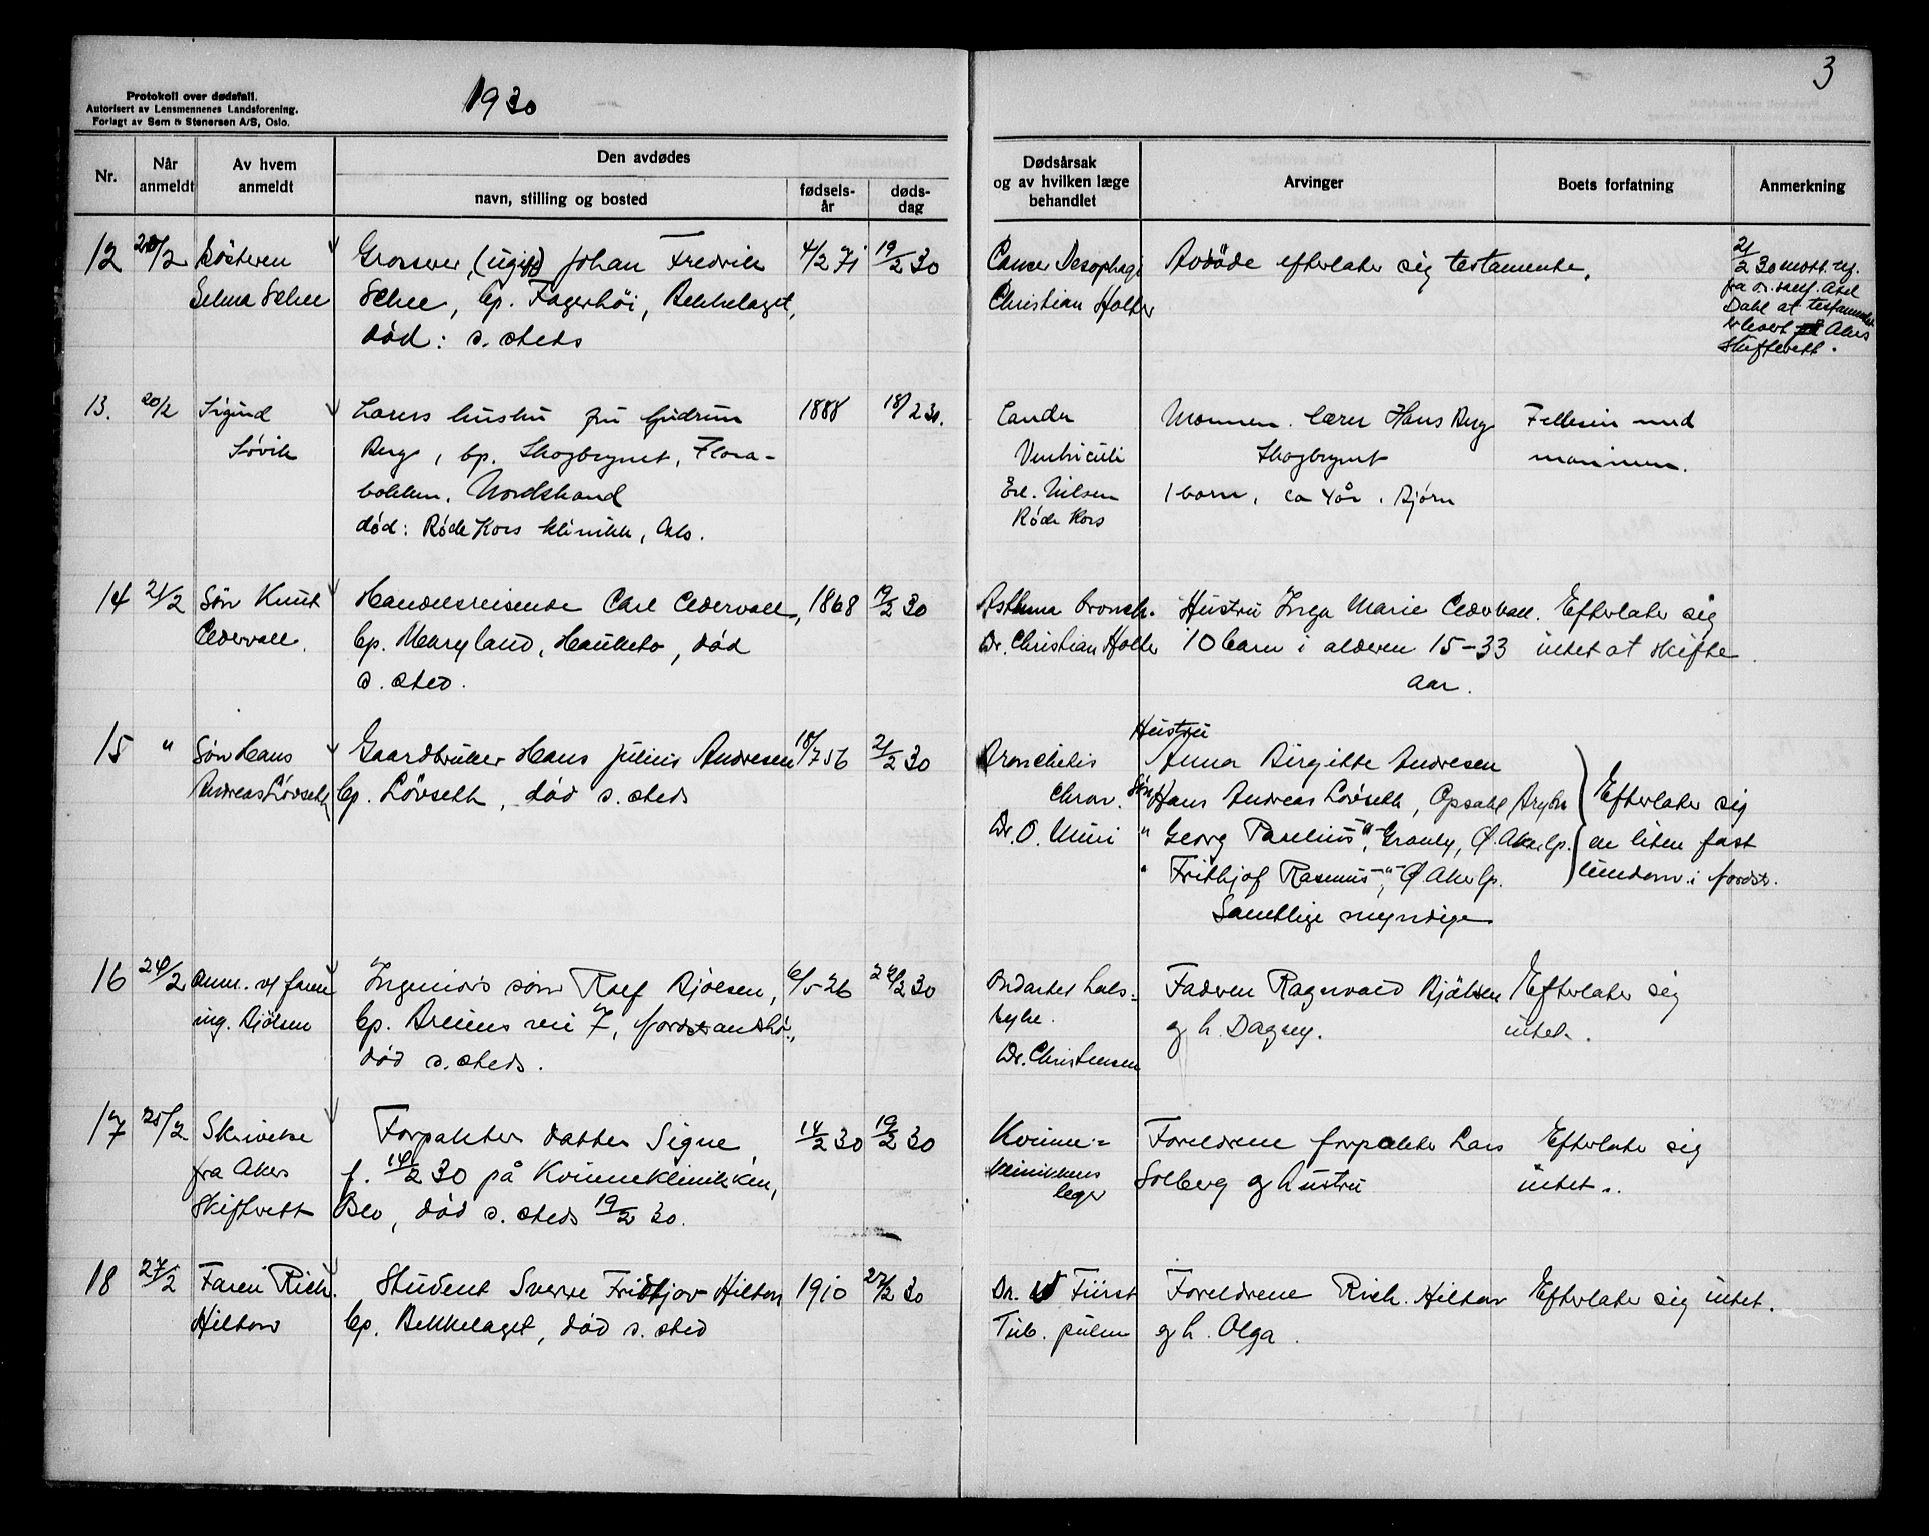 Protokoll over dødsfall.
Autorisert av Lensmennenes Landsforening.
Forlagt av Sem & Stenersen A/S, Oslo.
1930
3
Nr.
Når
anmeldt
Av hvem
anmeldt
Den avdødes
navn, stilling og bosted
fødsels-
år
døds-
dag
Dødsårsak
og av hvilken læge
behandlet
Arvinger
Boets forfatning
Anmerkning
12 20/2 Søsteren Grosserer, (ugift) Johan Fredrik 4/2 71 19/2 30 Cancer Oesophagi Avdöde efterlater sig testamente.
Selma Schee Schee, bp. Fagerhöi, Bekkelaget, Christian Holter
død: s. steds
21/2 30 mott. 
fra o.r.sakf. Axel
Dahl at testamentet
er levert Akers
Skifterett.
13. 20/2 Sigurd Lærers hustru fru Gudrun 1888 18/2 30. Cancer Mannen. lærer Hans Berg Felleseie med
Søvik Berg, bp. Skogbrynet, Flora- Ventriculi Skogbrynet mannen.
bakken. Nordstrand Erl. Nilsen 1 barn, ca 4 år. Bjørn
død: Røde Kors klinikk, Oslo. Røde Kors
14 21/2 Søn Knut Handelsreisende Carl Cedervall, 1868 19/2 30 Asthma bronch. Hustru Inga Marie Cedervall. Efterlater sig
Cedervall. bp. Maryland, Hauketo, død Dr. Christian Holter 10 barn i alderen 15-33 intet at skifte.
s. sted. aar.
15 " Søn Hans Gaardbruker Hans Julius Andresen 18/7 56 21/2 30 Bronchitis Hustru
Anna Birgitte Andresen
Andreas Lövseth bp. Lövseth, død s. steds chron. Søn Hans Andreas Lövseth, Opsahl Efterlater sig
Dr. O. " Georg -"-, Granly, Ø. Aker bp. en liten fast
" Frithjof Rasmus -"-, Ø Aker bp. eiendom i Nordstr.
Samtlige myndige
16 24/2 Anm. v/ faren Ingeniørs sønn Rolf Bjölsen, 6/5-26 24/2 30 Ondartet hals- Faderen Ragnvald Bjölsen Efterlater sig
ing. Bjölsen bp. vei 7, Nordstrandshö., syke. og h. Dagny. intet.
død s. steds. Dr. Christensen
17 25/2 Skrivelse Forpakter datter Signe, 14/2 30 19/2 30 Kvinne- Foreldrene forpakter Lars Efterlater sig
fra Akers f. 14/2 30 på Kvinneklinikken, klinikkens Solberg og hustru intet.
Skifterett Oslo, død s. steds 19/2 30. leger
18 27/2 Faren Rich. Student Sverre Fridtjov Hilton 1910 27/2 30 Dr. Fürst Foreldrene Rich. Hilton Efterlater sig intet.
Hilton bp. Bekkelaget, død s. sted Tub. pulm og h. Olga.